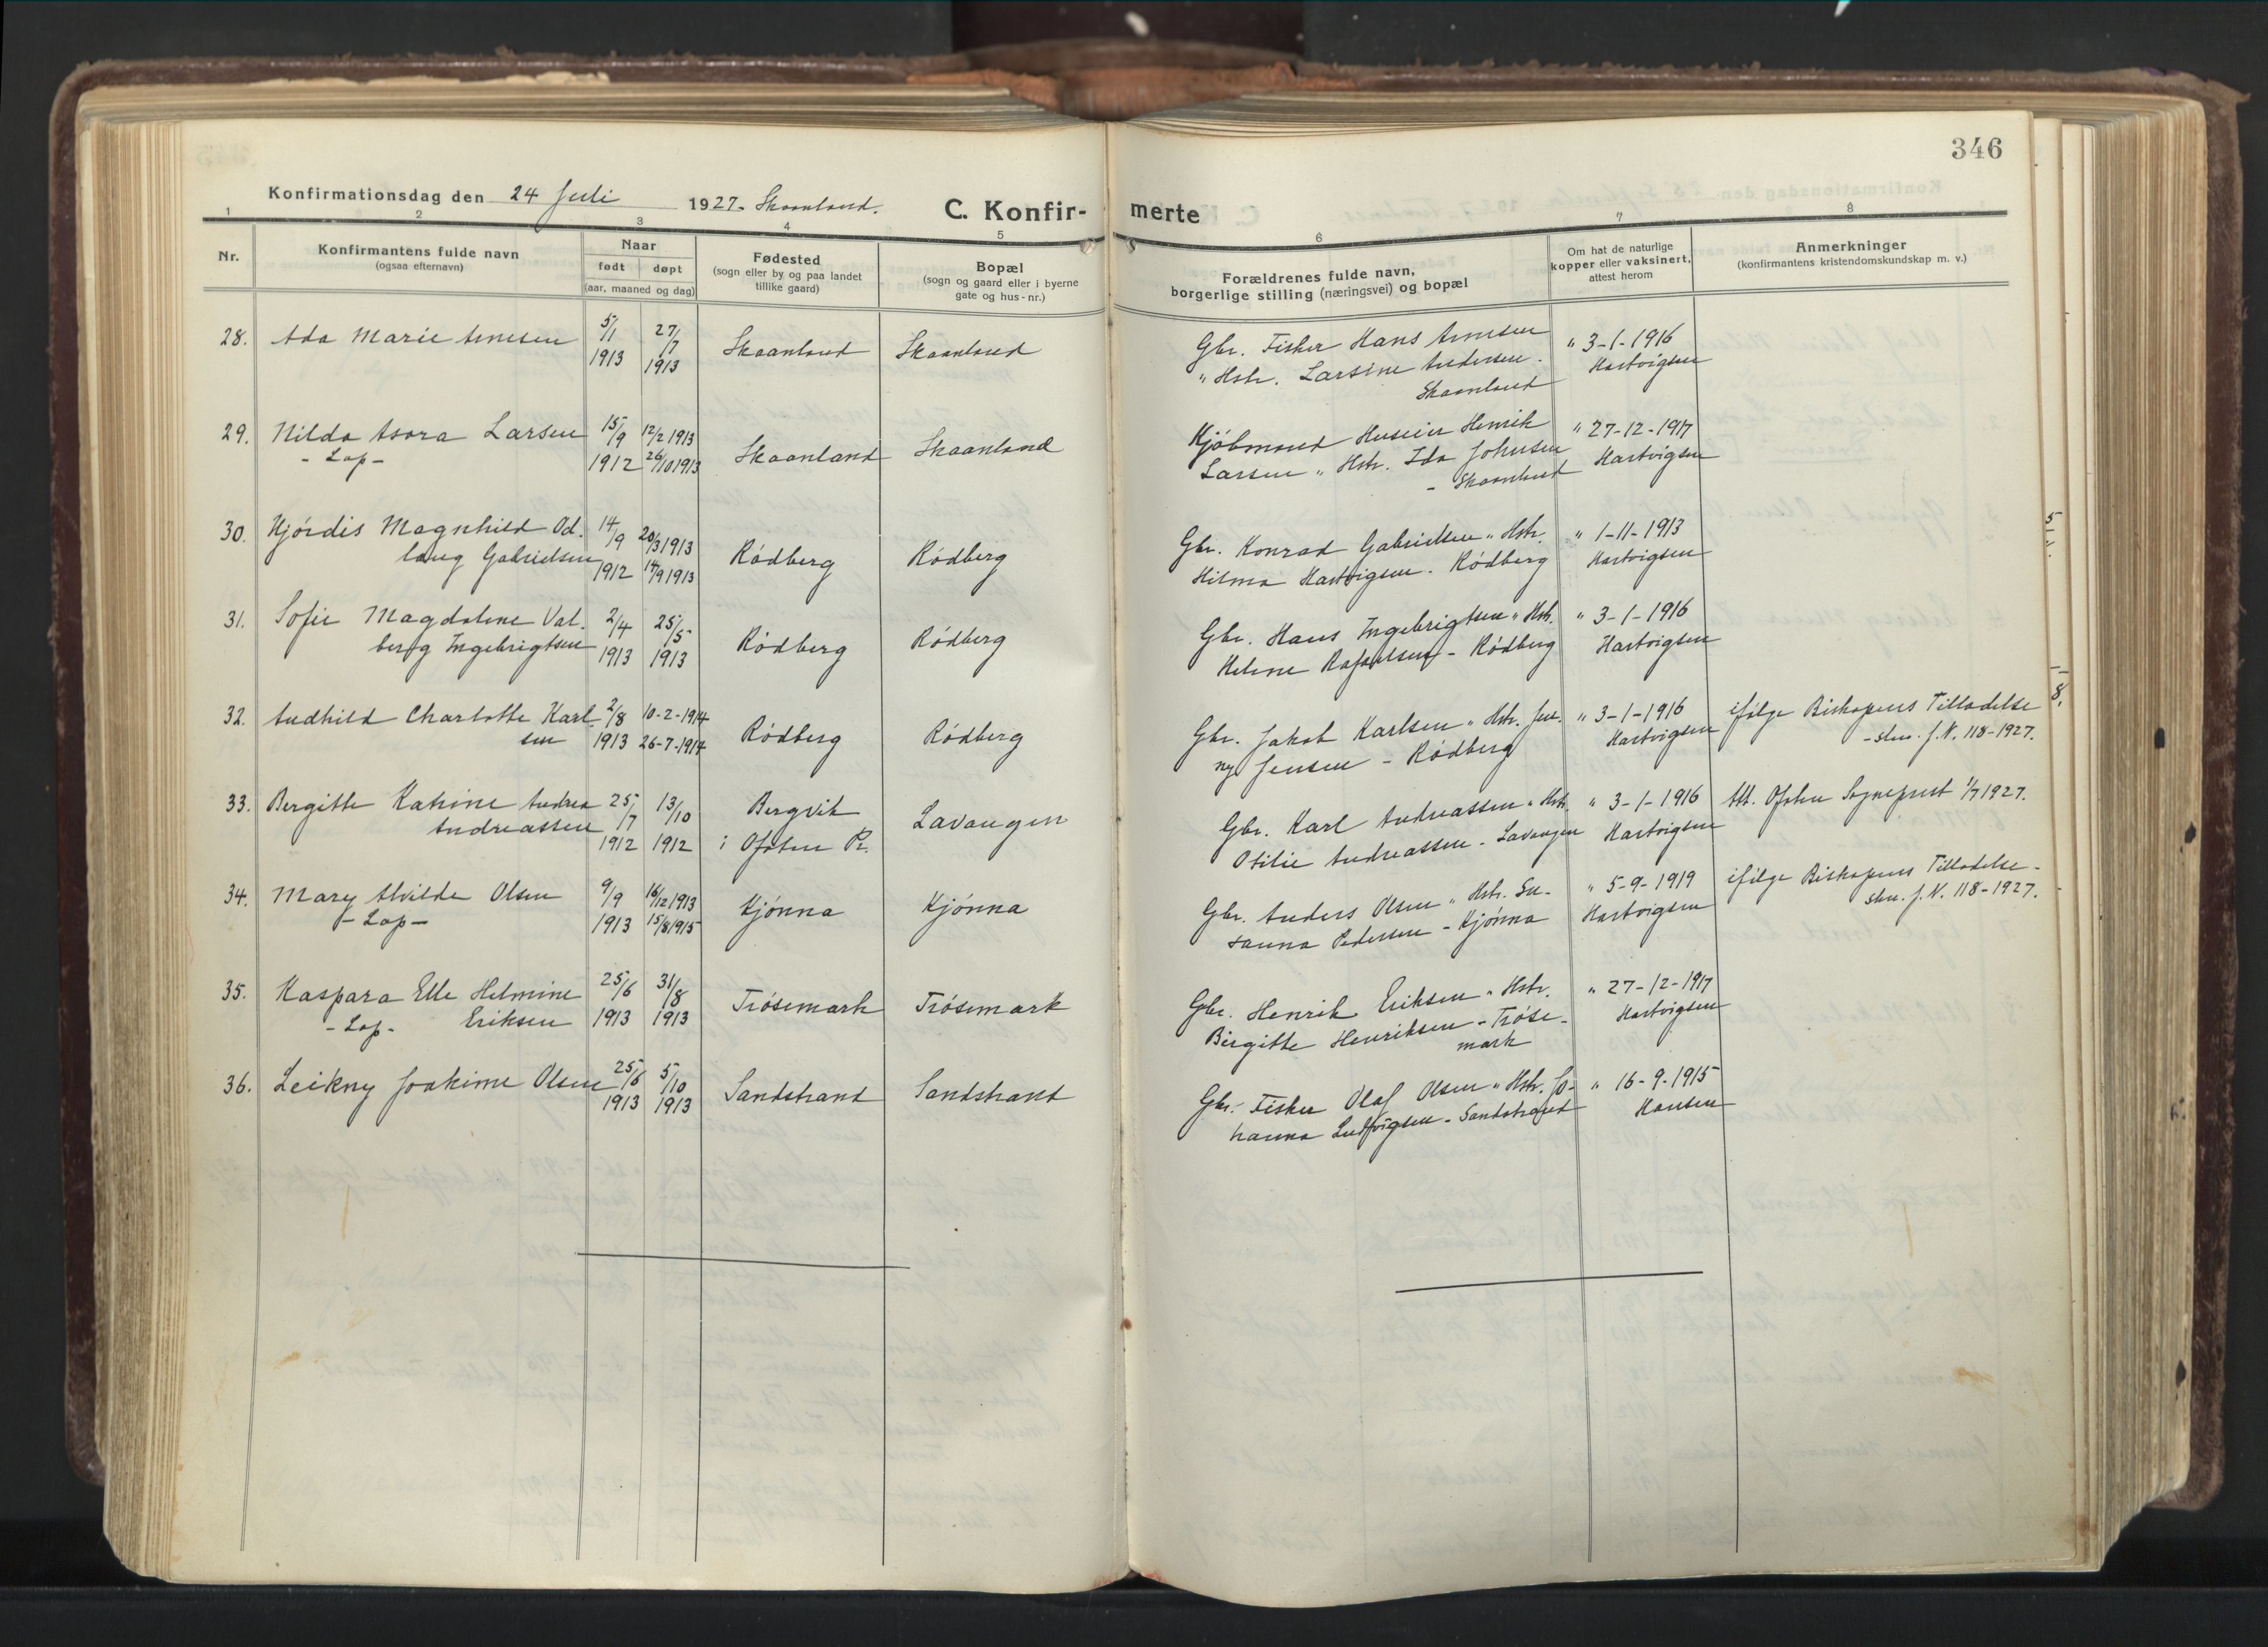 346
Konfirmationsdag den 24 Juli 1927. Skaanland.
C. Konfir-
merte
1 2 3 4 5 6 7 8
Nr.
Konfirmantens fulde navn
(ogsaa efternavn)
Naar
født døpt
(aar, maaned og dag)
Fødested
(sogn eller by og paa landet
tillike gaard)
Bopæl
(sogn og gaard eller i byerne
gate og hus-nr.)
Forældrenes fulde navn,
borgerlige stilling (næringsvei) og bopæl
Om hat de naturlige
kopper eller vaksinert,
attest herom
Anmerkninger
(konfirmantens kristendomskundskap m. v.)
28. Ada Marie Arnesen 5/1 1913 27/7 1913 Skaanland Skaanland
Gbr. Fisker Hans Arnesen
" Hstr. Larsine Andersen.
Skaanland
" 3-1-1916
Hartvigsen
29. Hilda Asora Larsen 15/9 1912 12/2 1913 26/10 1913 Skaanland Skaanland
- Lap -
Kjöbmand Henrik
Larsen " Hstr. Ida Johnsen
- Skaanland
" 27-12-1917
Hartvigsen
30. Hjördis Magnhild Od-
laug Gabrielsen 14/9 1912 20/3 1913 14/9 1913 Rödberg Rödberg
Gbr. Konrad Gabrielsen " Hstr.
Hilma Hartvigsen. Rödberg
" 1-11-1913
Hartvigsen
31. Sofie Magdalene Val-
borg Ingebrigtsen 2/4 1913 25/5 1913 Rödberg Rödberg
Gbr. Hans Ingebrigtsen " Hstr.
Helene Rafaelsen - Rödberg
" 3-1-1916
Hartvigsen
32. Audhild Charlotte Karl-
sen 2/8 1913 10-2-1914 26-7-1914 Rödberg Rödberg
Gbr. Jakob Karlsen " Hstr. Jen-
ny Jensen - Rödberg
" 3-1-1916
Hartvigsen
ifölge Biskopens Tilladelse
- skr. J.N. 118-1927.
33. Bergitte Katrine Andrea
Andreassen 25/7 1912 13/10 1912 Bergvik
i Ofoten Pr. Lavangen
Gbr. Karl Andreassen " Hstr.
Otilie Andreassen - Lavangen
" 3-1-1916
Hartvigsen
Att. Ofoten Sogneprest 1/7 1927.
34. Mary Alvilde Olsen 9/9 1913 16/12 1913 15/8 1915 Kjönna Kjönna
- Lap -
Gbr. Anders Olsen " Hstr. Su-
sanna Pedersen - Kjönna
" 5-9-1919
Hartvigsen
ifölge Biskopens Tilladelse -
skr. J.N. 118-1927.
35. Kaspara Elle Helmine
- Lap - Eriksen 25/6 1913 31/8 1913 Trösemark Trösemark
Gbr. Henrik Eriksen " Hstr.
Birgitte Henriksen - Tröse-
mark
" 27-12-1917
Hartvigsen
36. Leikny Joakime Olsen 25/6 1913 5/10 1913 Sandstrand Sandstrand
Gbr. Fisker Olaf Olsen " Hstr. Jo-
hanna Ludvigsen - Sandstrand
" 16-9-1915
Hansen